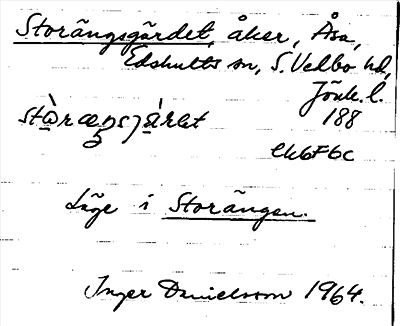 Storängsgärdet, åker, Åsa,
Edshults sn, S. Vedbo hd,
Jönk. l.
188
Läge i Storängen.
Inger Danielsson 1964.